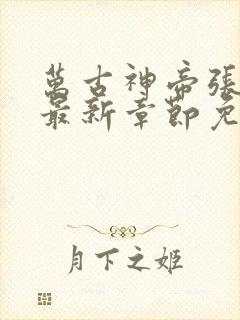 萬古神帝張
最新章節免
月下之姬